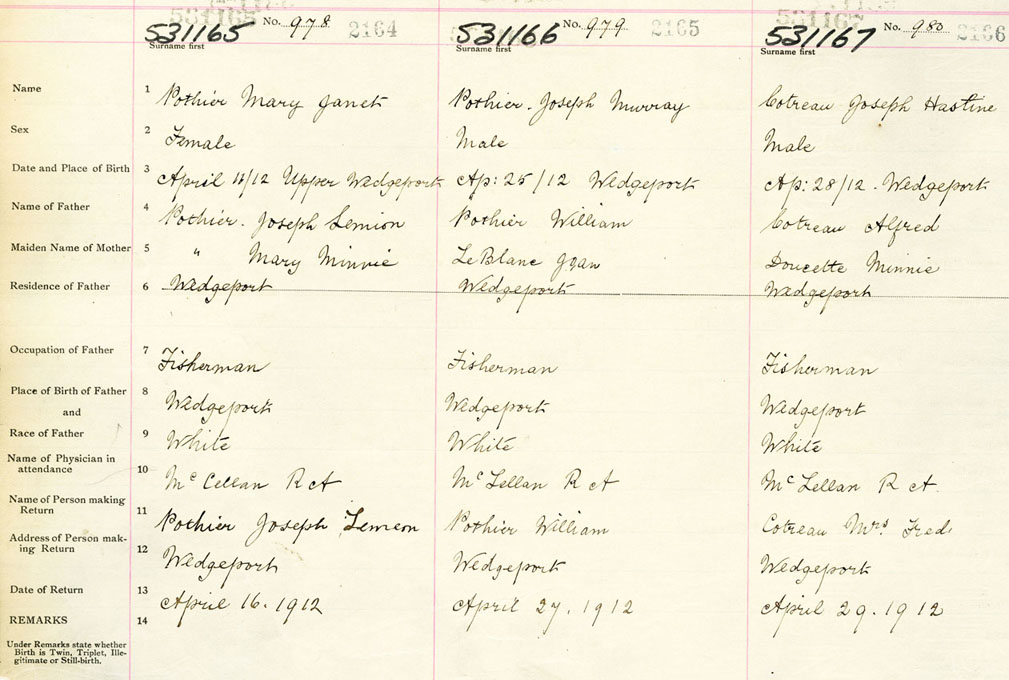 531165 No. 978 2164 531166 No. 979 2165 531167 No. 980 2166
Surname first Surname first Surname first
Name 1 Pothier Mary Janet Pothier. Joseph Murray Cotreau Joseph Hastine
Sex 2 Female Male Male
Date and Place of Birth 3 April 11/12 Upper Wedgeport Ap: 25/12 Wedgeport Ap: 28/12. Wedgeport
Name of Father 4 Pothier. Joseph Lemion Pothier William Cotreau Alfred
Maiden Name of Mother 5 " Mary Minnie LeBlanc Doucette Minnie
Residence of Father 6 Wedgeport Wedgeport Wedgeport
Occupation of Father 7 Fisherman Fisherman Fisherman
Place of Birth of Father 8 Wedgeport Wedgeport Wedgeport
and
Race of Father 9 White White White
Name of Physician in
attendance 10 Mc Cellan R A Mc Lellan R A Mc Lellan R A.
Name of Person making
Return 11 Pothier Joseph Lemeon Pothier William Cotreau Mrs Fred
Address of Person mak-
ing Return 12 Wedgeport Wedgeport Wedgeport
Date of Return 13 April 16. 1912 April 27. 1912 April 29. 1912
REMARKS 14
Under Remarks state whether
Birth is Twin, Triplet, Ille-
gitimate or Still-birth.